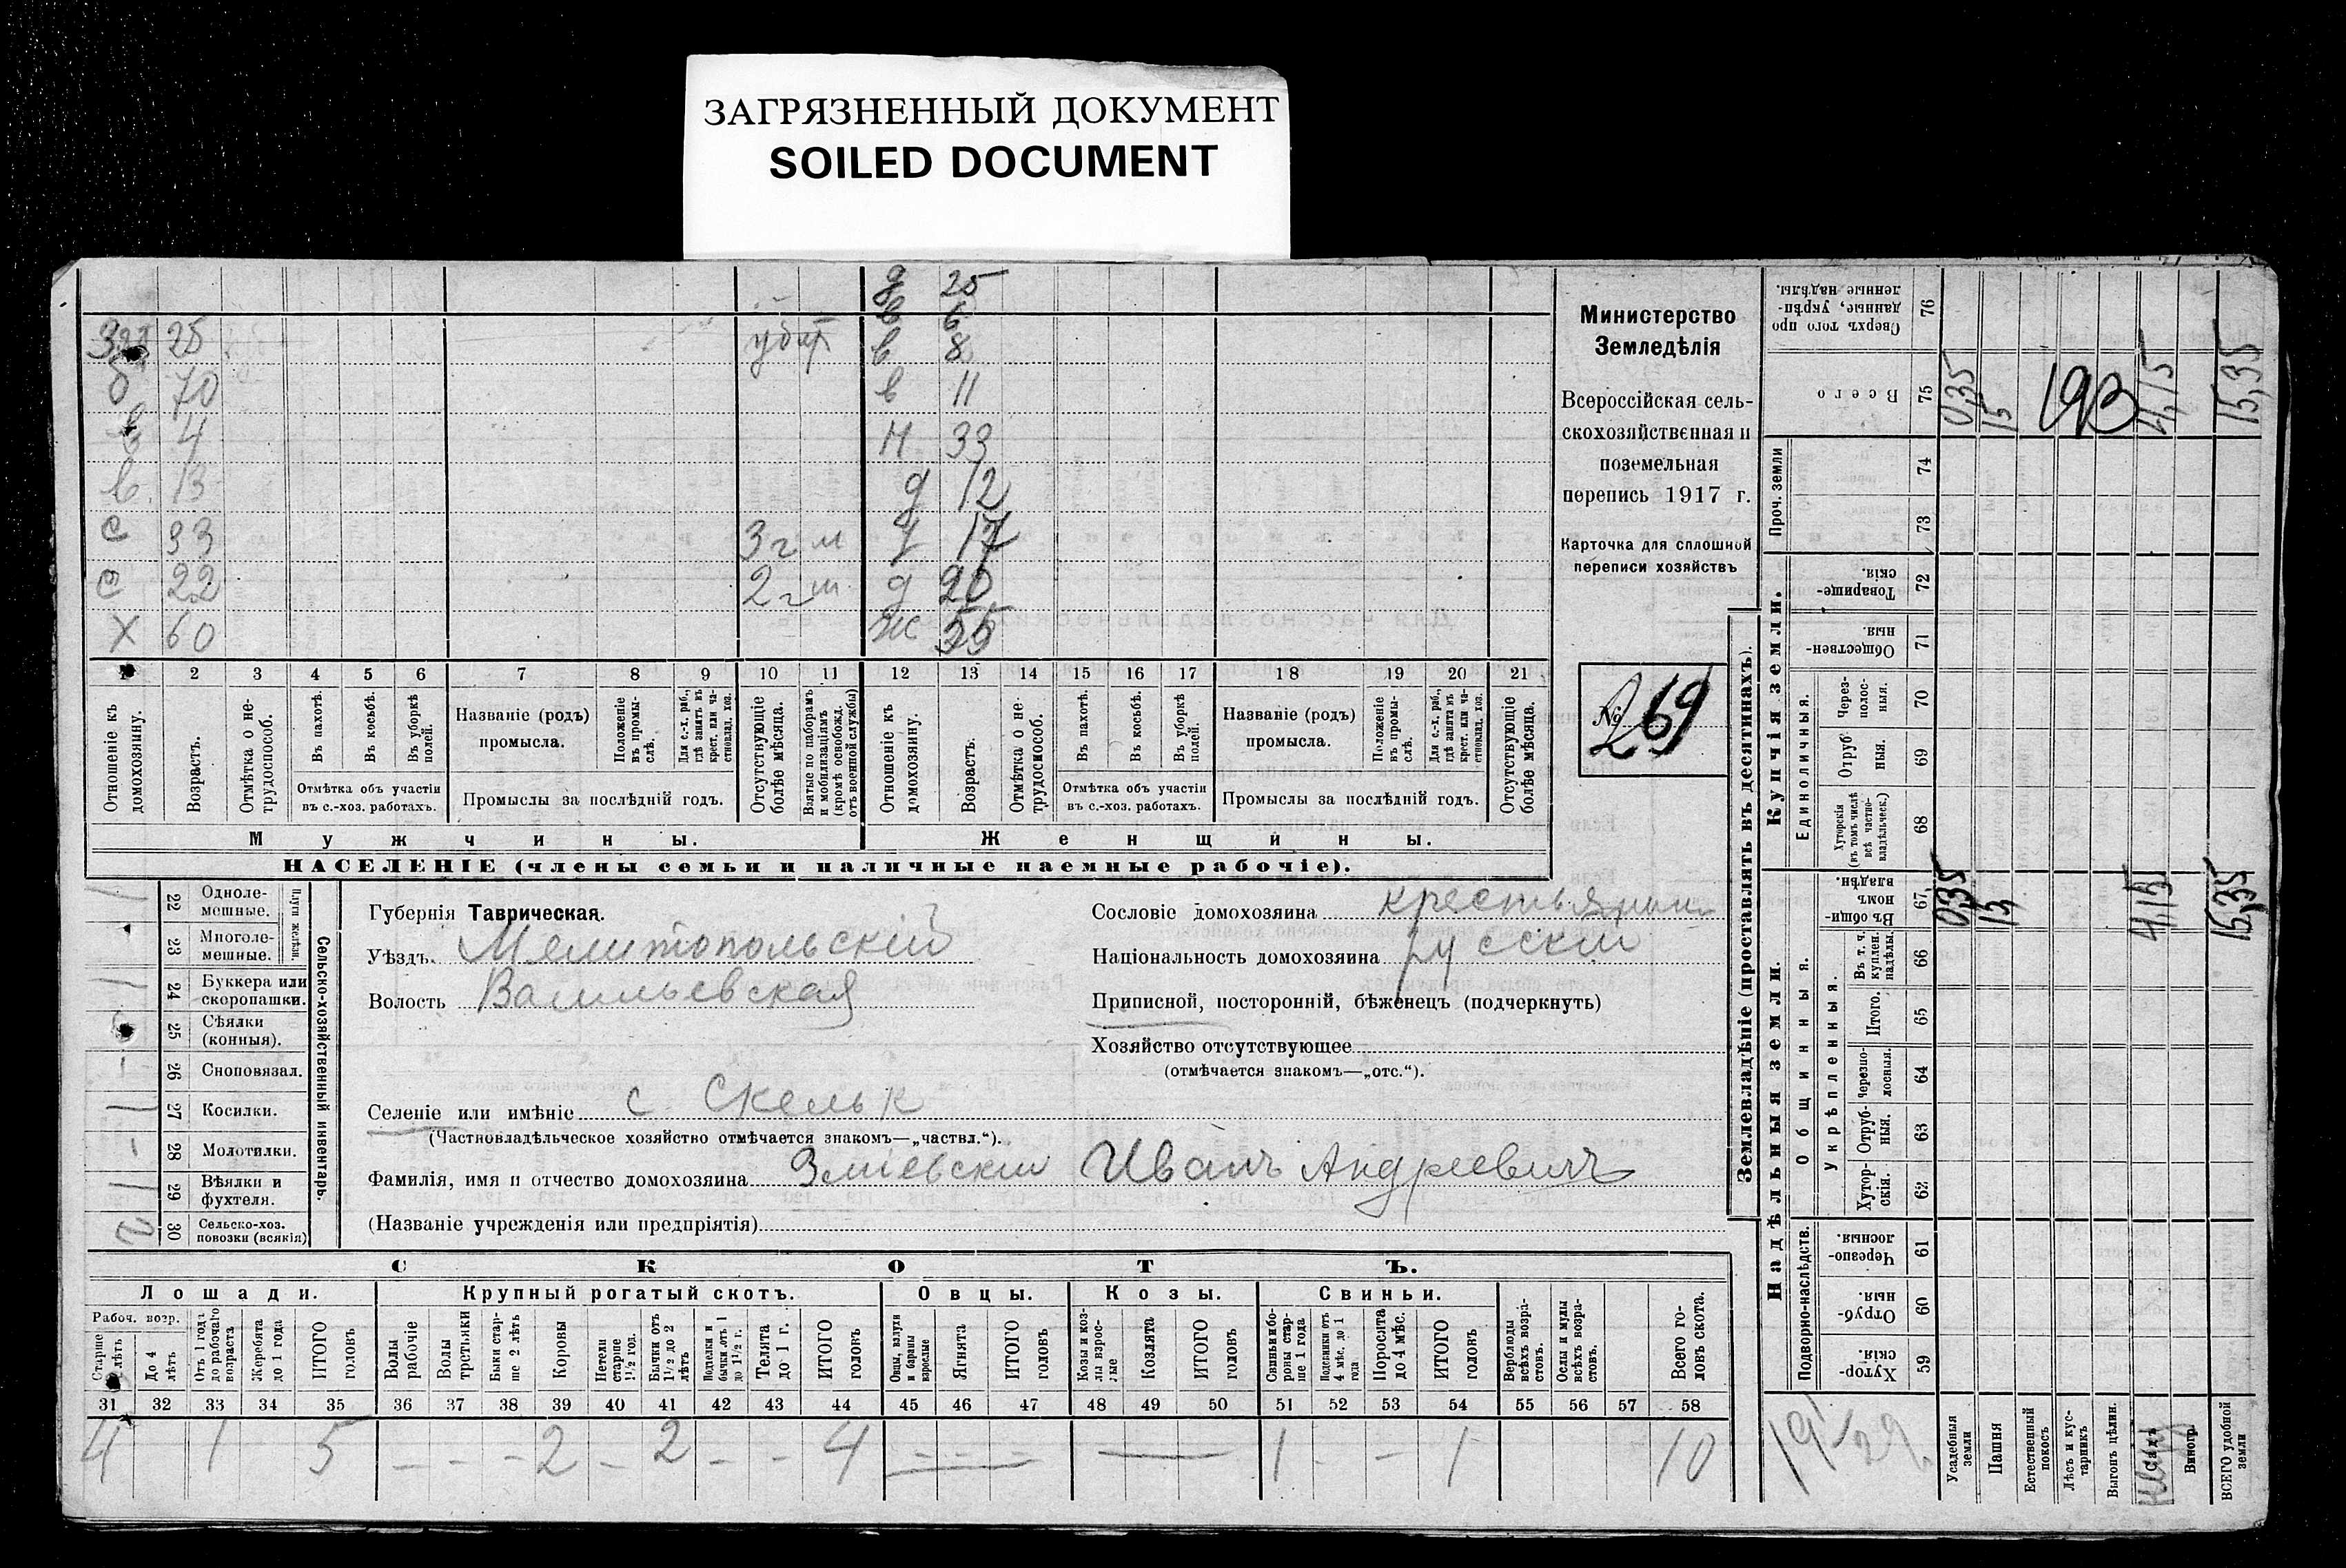 ЗАГРЯЗНЕННЫЙ ДОКУМЕНТ
SOILED DOCUMENT
д 25
в 6
25 убит в 8
б 70 в 11
в 4 н 33
в 13 д 12
с 33 3 г м д 17
с 22 2 г м д 20
Х 60 ж 55
1 2 3 4 5 6 7 8 9 10 11 12 13 14 15 16 17 18 19 20 21
Отношеніе къ домохозяину.
Возрастъ.
Отмѣтка о не-трудоспособ.
Въ пахотѣ.
Въ косьбѣ.
Въ уборкѣ полей.
Отмѣтка объ участіи въ с.-хоз. работахъ.
Названіе (родъ) промысла.
Положеніе въ промыслѣ.
Для с.-х. раб., гдѣ занятъ въ крест. или частновлад. хоз.
Промыслы за послѣдній годъ.
Отсутствующіе болѣе мѣсяца.
Взятые по наборамъ и мобилизаціямъ (кромѣ освобожд. отъ военной службы)
Отношеніе къ домохозяину.
Возрастъ.
Отмѣтка о не-трудоспособ.
Въ пахотѣ.
Въ косьбѣ.
Въ уборкѣ полей.
Отмѣтка объ участіи въ с.-хоз. работахъ.
Названіе (родъ) промысла.
Положеніе въ промыслѣ.
Для с.-х. раб., гдѣ занята въ крест. или частновлад. хоз.
Промыслы за послѣдній годъ.
Отсутствующіе болѣе мѣсяца.
Мужчины. Женщины.
НАСЕЛЕНІЕ (члены семьи и наличные наемные рабочіе).
Министерство
Земледѣлія
Всероссійская сель-
скохозяйственная и
поземельная
перепись 1917 г.
Карточка для сплошной
переписи хозяйствъ
№ 269
Сельско-хозяйственный инвентарь
Плуги желѣзн.
22 Одноле-мешные.
23 Многоле-мешные.
24 Буккера или скоропашки.
25 Сѣялки (конныя).
26 Сноповязал.
27 Косилки.
28 Молотилки.
29 Вѣялки и фухтеля.
30 Сельско-хоз. повозки (всякія) 2
Губернія Таврическая.
Уѣздъ Мелитопольскій
Волость Васильевская
Сословіе домохозяина крестьянин
Національность домохозяина русскій
Приписной, посторонній, бѣженецъ (подчеркнуть)
Хозяйство отсутствующее
(отмѣчается знакомъ—„отс.“).
Селеніе или имѣніе с. Скельк
(Частновладѣльческое хозяйство отмѣчается знакомъ—„частвл.“).
Фамилія, имя и отчество домохозяина Зміевскій Иванъ Андреевичъ
(Названіе учрежденія или предпріятія)
СКОТЪ.
Лошади. Крупный рогатый скотъ. Овцы. Козы. Свиньи.
Рабоч. возр.
Старше 4 лѣтъ
До 4 лѣтъ
Отъ 1 года до рабочаго возраста
Жеребята до 1 года
ИТОГО головъ
Волы рабочіе
Волы третьяки
Быки стар-ше 2 лѣтъ
Коровы
Нетели старше 1½ год.
Бычки отъ 1½ до 2 лѣтъ
Подтелки и бычки отъ 1 до 1½ г.
Телята до 1 г.
ИТОГО головъ
Овцы, валухи и бараны взрослые
Ягнята
ИТОГО головъ
Козы и коз-лы взрос-лые
Козлята
ИТОГО головъ
Свиньи и бо-ровы стар-ше 1 года
Подсвинки отъ 4 мѣс. до 1 года
Поросята до 4 мѣс.
ИТОГО головъ
Верблюды всѣхъ возра-стовъ.
Ослы и мулы всѣхъ возра-стовъ.
Всего го-ловъ скота.
31 32 33 34 35 36 37 38 39 40 41 42 43 44 45 46 47 48 49 50 51 52 53 54 55 56 57 58
4 1 5 - - - 2 - 2 - - 4 - - - — 1 - - 1 10
Землевладѣніе (проставлять въ десятинахъ).
Купчія земли.
Надѣльныя земли.
Сверхъ того про данные, укрѣп-ленные надѣлы. 76
Всего 75 0,35 13 193 4,15 15,35
Проч. земли 74 73
Товарище-скія. 72
Обществен-ныя. 71
Единоличныя.
Через-полос-ныя. 70
Отруб ныя. 69
Хуторскія (въ томъ числѣ всѣ частно-владѣльческ.) 68
Въ общи-номъ владѣн. 67 0,35 13 4,15 15,35
Общинныя.
Укрѣпленныя.
Въ т. ч. куплен. надѣлы. 66
Итого. 65
Черезпо-лосныя. 64
Отруб-ныя. 63
Хутор-скія. 62
Подворно-наслѣдств.
Черезпо-лосныя 61
Отруб-ныя. 60
Хутор-скія. 59
Усадебныя земли
Пашня
Естественный покосъ
Лѣсъ и кус-тарникъ
Выгонъ цѣлин.
Садъ
Виногр.
ВСЕГО удобной земли